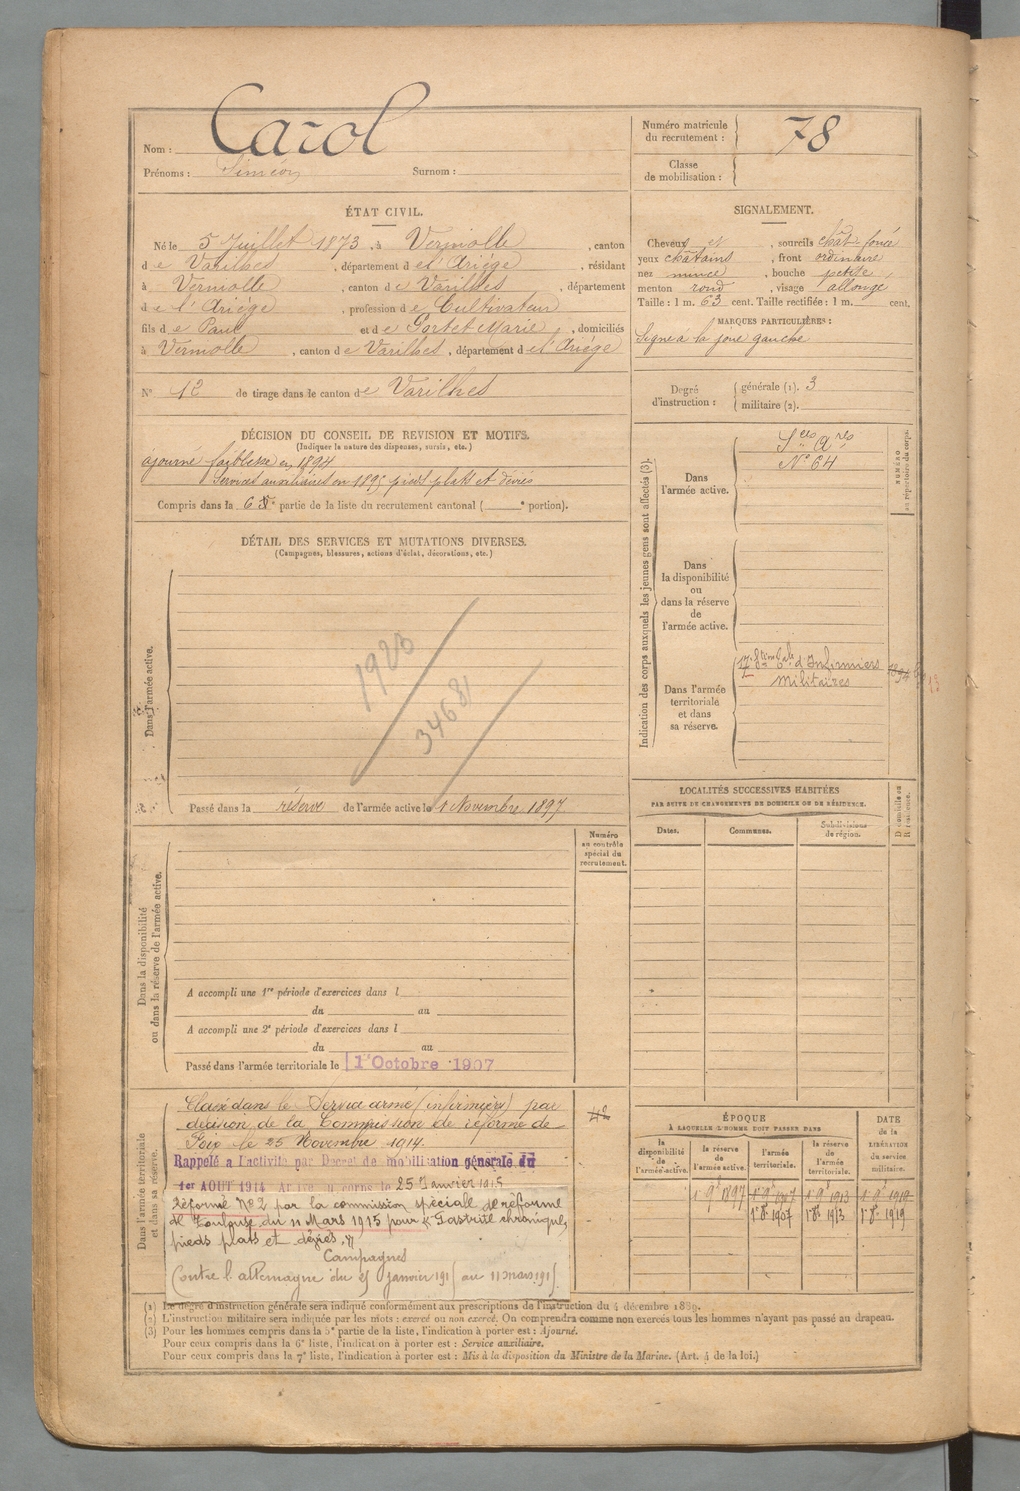 Nom : Carol
Prénoms : Siméon Surnom :
Numéro matricule du recrutement : 78
Classe de mobilisation :
ÉTAT CIVIL.
Né le 5 Juillet 1873, à Verniolle, canton
de Varilhes, département de l'Ariège, résidant
à Verniolle, canton de Varilhes, département
de l'Ariège, profession de Cultivateur
fils de Paul et de Portet Marie, domiciliés
à Verniolle, canton de Varilhes, département de l'Ariège
N° 12 de tirage dans le canton de Varilhes
SIGNALEMENT.
Cheveux et, sourcils chât. foncé
yeux châtains, front ordinaire
nez mince, bouche petite
menton rond, visage allongé
Taille : 1 m. 63 cent. Taille rectifiée : 1 m. cent.
MARQUES PARTICULIÈRES :
Signe à la joue gauche
Degré d'instruction : générale (1). 3
militaire (2).
DÉCISION DU CONSEIL DE REVISION ET MOTIFS.
(Indiquer la nature des dispenses, sursis, etc.)
ajourné faiblesse en 1894
Services auxiliaires en 1895 pieds plats et déviés
Compris dans la 6e partie de la liste du recrutement cantonal ( e portion).
DÉTAIL DES SERVICES ET MUTATIONS DIVERSES.
(Campagnes, blessures, actions d'éclat, décorations, etc.)
Dans l'armée active.
1923
34681
Passé dans la réserve de l'armée active le 1 Novembre 1897
Indication des corps auxquels les jeunes gens sont affectés (3).
NUMÉRO au répertoire du corps.
Dans l'armée active.
Sces Ares
N° 64
Dans la disponibilité ou dans la réserve de l'armée active.
Dans l'armée territoriale et dans sa réserve.
d'Infirmiers
Militaires
LOCALITÉS SUCCESSIVES HABITÉES
PAR SUITE DE CHANGEMENTS DE DOMICILE OU DE RÉSIDENCE.
Dates. Communes. Subdivisions de région.
Domicile ou Résidence.
Numéro au contrôle spécial du recrutement.
Dans la disponibilité ou dans la réserve de l'armée active.
A accompli une 1re période d'exercices dans l
du au
A accompli une 2e période d'exercices dans l
du au
Passé dans l'armée territoriale le 1 Octobre 1907
Dans l'armée territoriale et dans sa réserve.
Classé dans le Service armé (infirmiers) par
décision de la Commission de réforme de
Foix le 25 Novembre 1914.
Rappelé à l'activité par Décret de mobilisation générale du
1er AOUT 1914 Arrivé au corps le 25 Janvier 1915
Réformé N° 2 par la commission spéciale de réforme
de Toulouse du 11 Mars 1915 pour "Gastrite chronique,
pieds plats et déviés."
Campagnes
Contre l'allemagne du 25 janvier 1915 au 11 mars 1915.
ÉPOQUE
À LAQUELLE L'HOMME DOIT PASSER DANS
la disponibilité de l'armée active. la réserve de l'armée active. l'armée territoriale. la réserve de l'armée territoriale.
DATE de la LIBÉRATION du service militaire.
1 9e 1897 1 9e 1907 1 9e 1913 1 9e 1919
1 8e 1907 1 8e 1913 1 8e 1919
(1) Le degré d'instruction générale sera indiqué conformément aux prescriptions de l'instruction du 4 décembre 1889.
(2) L'instruction militaire sera indiquée par les mots : exercé ou non exercé. On comprendra comme non exercés tous les hommes n'ayant pas passé au drapeau.
(3) Pour les hommes compris dans la 5e partie de la liste, l'indication à porter est : Ajourné.
Pour ceux compris dans la 6e liste, l'indication à porter est : Service auxiliaire.
Pour ceux compris dans la 7e liste, l'indication à porter est : Mis à la disposition du Ministre de la Marine. (Art. 4 de la loi.)